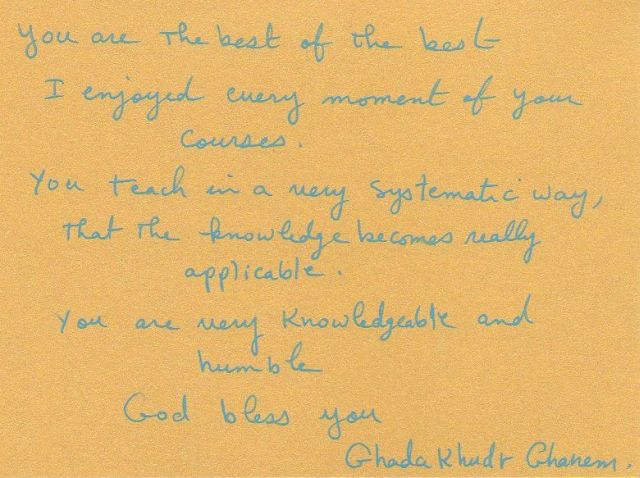 You are the best of the best
I enjoyed every moment of your
courses.
You teach in a very systematic way,
that the knowledge becomes really
applicable.
You are very knowledgeable and
humble
God bless you
Ghada Khudr Ghanem.